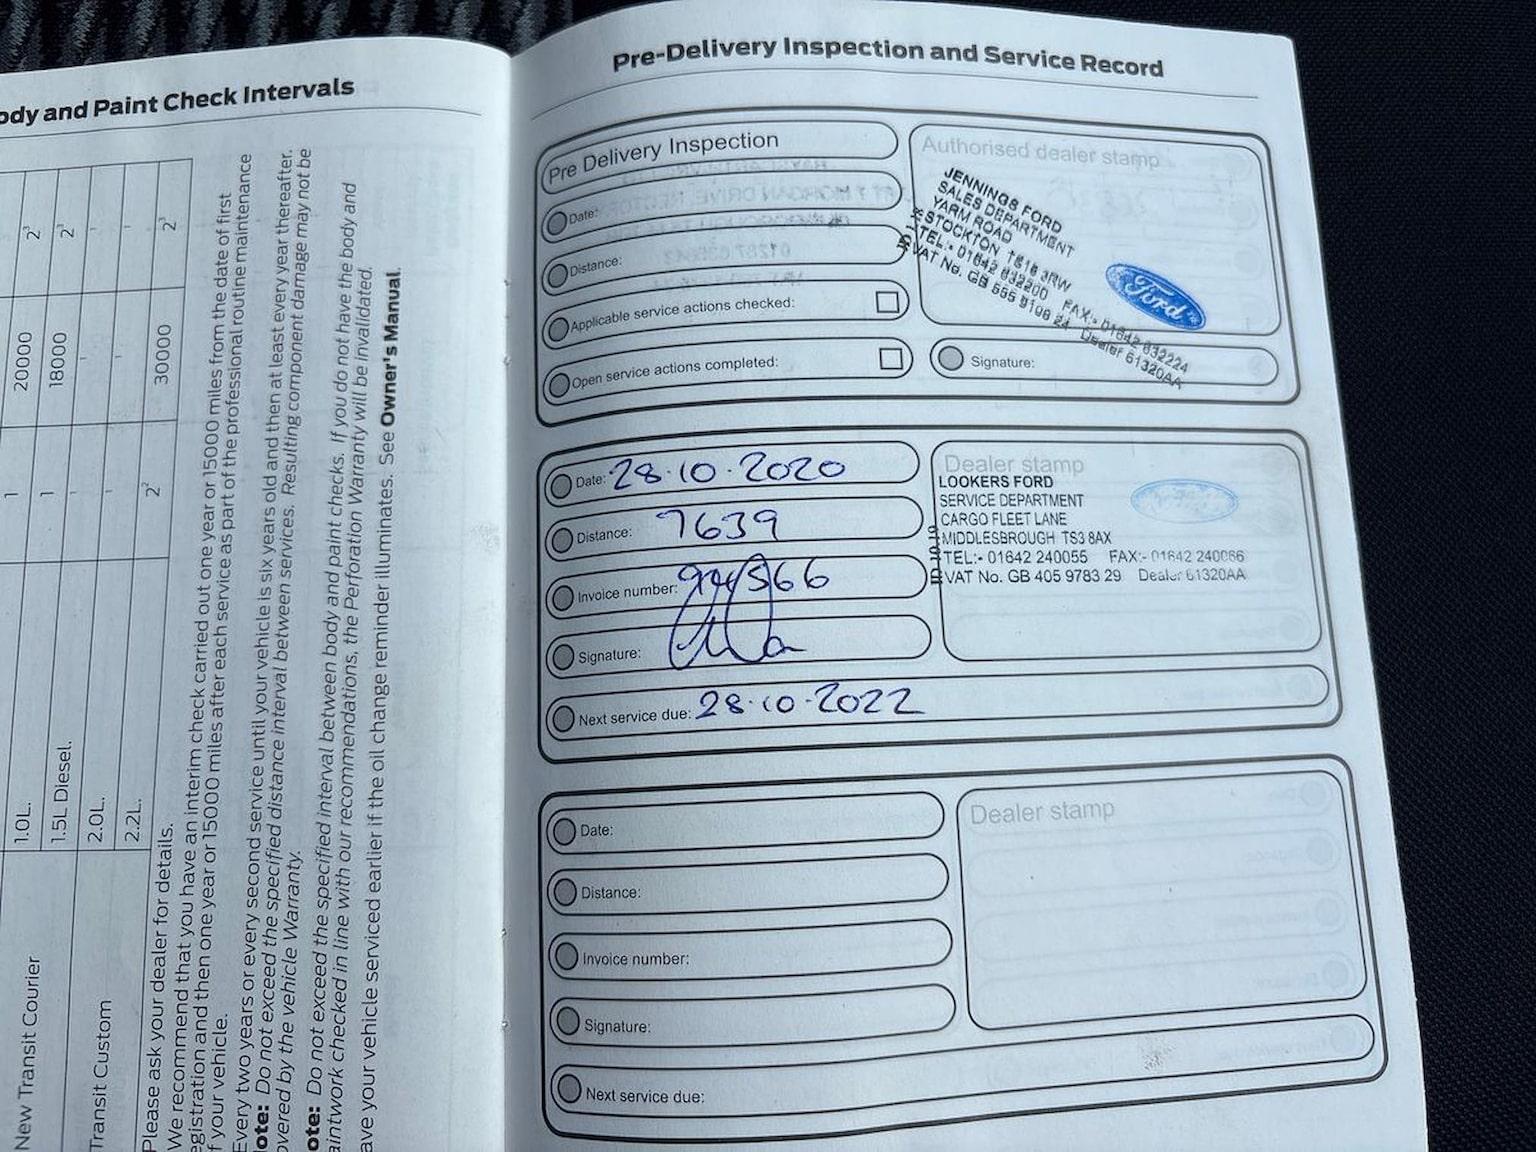 ody and Paint Check Intervals
20000
2³
1.0L.
1
18000
2³
1.5L Diesel.
1
New Transit Courier
2.0L.
1
1
1
2.2L.
1
1
1
Transit Custom
2²
30000
2³
Please ask your dealer for details.
We recommend that you have an interim check carried out one year or 15000 miles from the date of first
egistration and then one year or 15000 miles after each service as part of the professional routine maintenance
f your vehicle.
Every two years or every second service until your vehicle is six years old and then at least every year thereafter.
lote: Do not exceed the specified distance interval between services. Resulting component damage may not be
overed by the vehicle Warranty.
ote: Do not exceed the specified interval between body and paint checks. If you do not have the body and
aintwork checked in line with our recommendations, the Perforation Warranty will be invalidated.
ave your vehicle serviced earlier if the oil change reminder illuminates. See Owner's Manual.
Pre-Delivery Inspection and Service Record
Pre Delivery Inspection
Date:
Distance:
Applicable service actions checked:
Open service actions completed:
Authorised dealer stamp
JENNINGS FORD
SALES DEPARTMENT
YARM ROAD
STOCKTON TS18 3RW
TEL:- 01642 632200 FAX:- 01642 632224
VAT No. GB 555 9108 24 Dealer 61320AA
Ford
Signature:
Date: 28.10.2020
Distance: 7639
Invoice number: 944566
Signature:
Next service due: 28.10.2022
Dealer stamp
LOOKERS FORD
SERVICE DEPARTMENT
CARGO FLEET LANE
MIDDLESBROUGH TS3 8AX
TEL:- 01642 240055 FAX:- 01642 240066
VAT No. GB 405 9783 29 Dealer 61320AA
Date:
Distance:
Invoice number:
Signature:
Next service due:
Dealer stamp